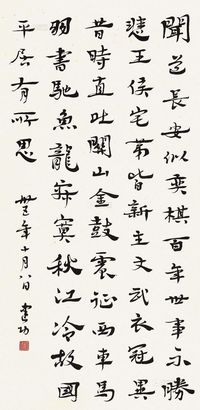 聞道長安似奕棋百年世事不勝
悲王侯宅第皆新主文武衣冠異
昔時直北關山金鼓震征西車馬
羽書馳魚龍寂寞秋江冷故國
平居有所思
年十月八日 建功